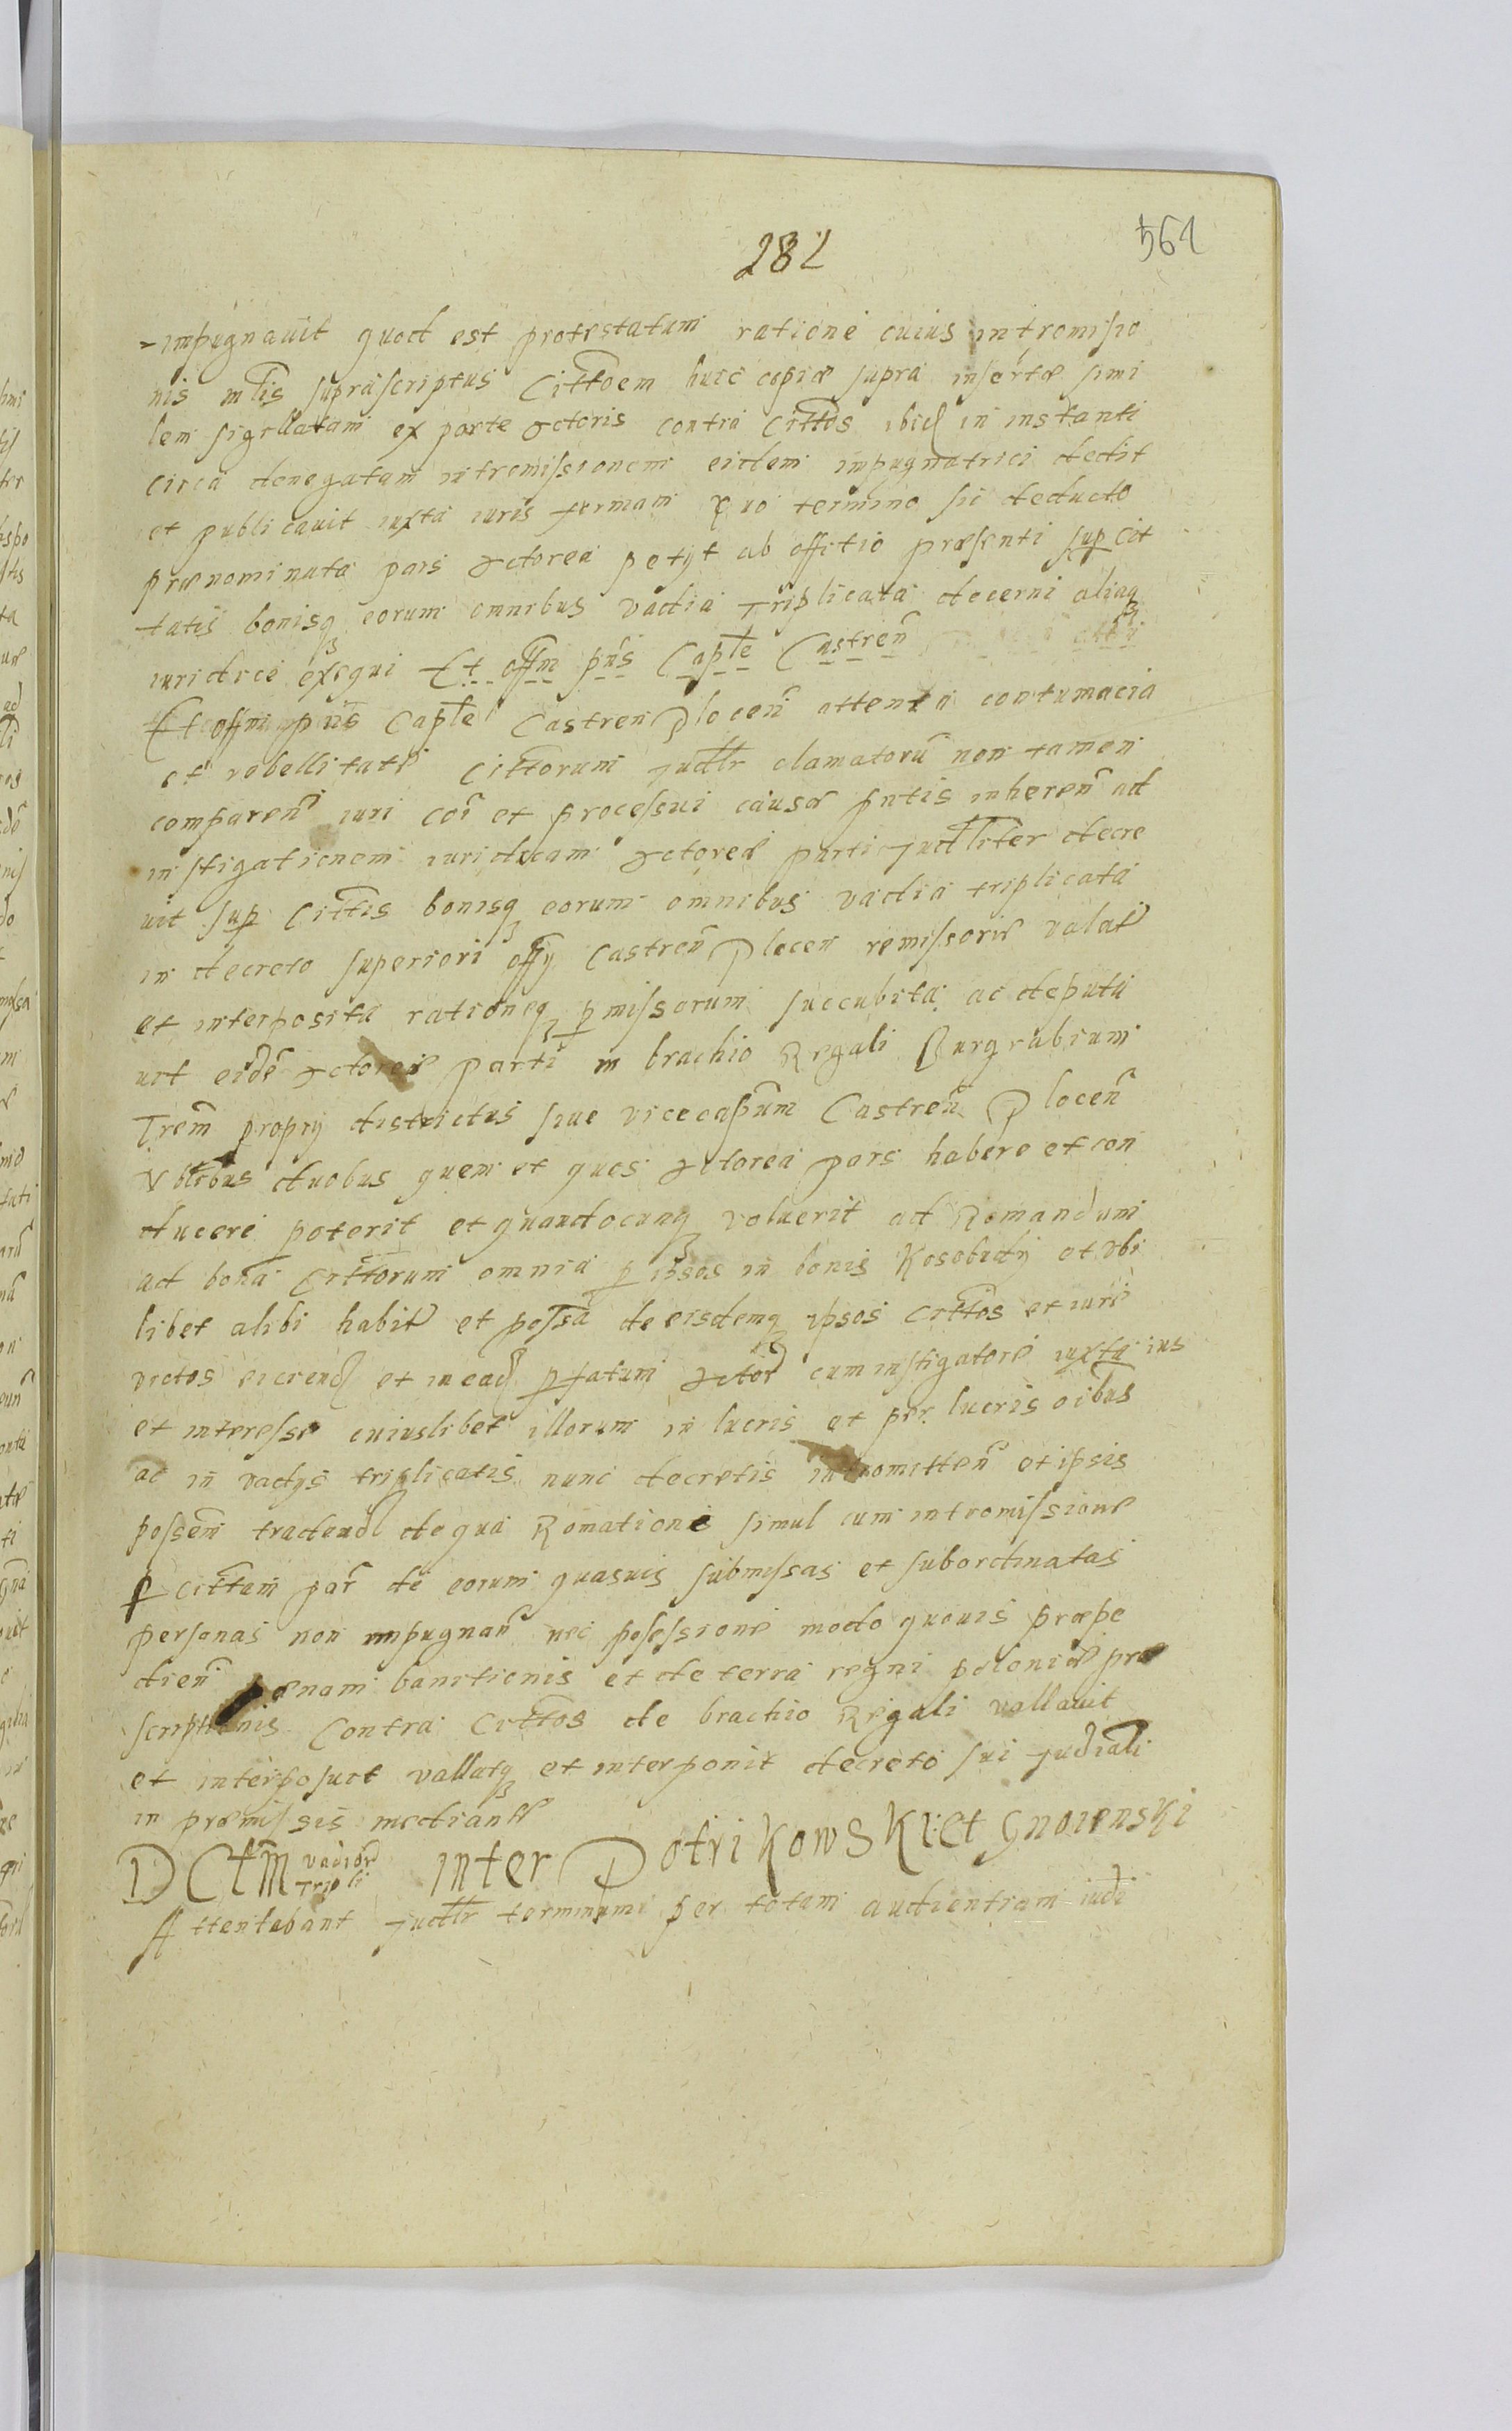 282
561
-impugnauit quod est protestatum ratione cuius intromisio
nis mtis supràscriptus Cittõem huic copiæ supra insertæ simi
lem sigillatam ex parte Actoris contra Cittos ibid in instanti
circa denegatam intromissionem eidem impugnatrici dedit
et publicauit iuxta iuris formam Quo termino sic deducto
prænominata pars Actorea petyt ab offitio præsenti sup cit
tatis bonisq eorum omnibus vadia triplicata decerni aliaq
iuridice exequi Et offm pñs Caplę Castreñ
Et offm pñs Caplę Castren Plocen attenta contumacia
et rebellitate Cittorum Judlr clamatorũ non tamen
compareñ iuri coi et processui causæ pñtis inhereñ ad
instigationem iuridicam Actoreæ parti Judliter decre
uit sup Cittis bonisq eorum omnibus vadia triplicata
in decreto superiori offy Castreñ Plocen remissorie valat
et interposita rationeq pmissorum succubita ac deputa
uit eidẽ Actoreæ parti in brachio Regali Burgrabium
Trẽm propry districtus siue vicecapñum Castreñ Ploceñ
Nblibus duobus quem et quos Actorea pars habere et con
ducere poterit et quandocunq voluerit ad Romandum
ad bona Cittorum omnia p ipsos in bonis Kosobudy et vbi
libet alibi habit et possa de eisdemq ipsos Cittos et iure
victos eiciend et in ead pfatum Actor cum instigatore iuxta ius
et interesse cuiuslibet illorum in lucris et per lucris oibus
ac in vadys triplicatis nunc decretis intromitteñ et ipsis
possem tradend de qua Romatione simul cum intromissione
p cittam par de eorum quasuis submissas et subordinatas
personas non impugnañ nec possessione modo quouis præpe
dieñ pœnam banitionis et de terra regni poloniæ præ
scriptionis Contra Cittos de brachio Regali vallauit
et interposuit vallatq et interponit decreto sui Judiciali
in præmissis mediante
DCtm vadior tripli inter Potrikowski et Gnoienski
Attentabant Judlr terminum per totam audientiam iudi